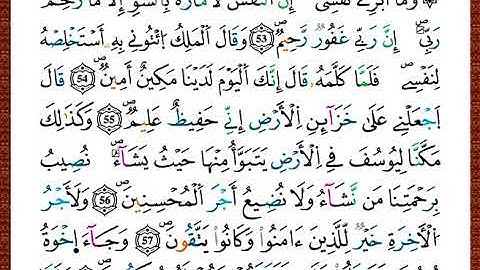 وَمَآ أُبَرِّئُ نَفْسِىٓ ۚ إِنَّ ٱلنَّفْسَ لَأَمَّارَةٌۢ بِٱلسُّوٓءِ إِلَّا مَا رَحِمَ
رَبِّىٓ ۚ إِنَّ رَبِّى غَفُورٌ رَّحِيمٌ ﴿53﴾ وَقَالَ ٱلْمَلِكُ ٱئْتُونِى بِهِۦٓ أَسْتَخْلِصْهُ
لِنَفْسِى ۖ فَلَمَّا كَلَّمَهُۥ قَالَ إِنَّكَ ٱلْيَوْمَ لَدَيْنَا مَكِينٌ أَمِينٌ ﴿54﴾ قَالَ
ٱجْعَلْنِى عَلَىٰ خَزَآئِنِ ٱلْأَرْضِ ۖ إِنِّى حَفِيظٌ عَلِيمٌ ﴿55﴾ وَكَذَٰلِكَ
مَكَّنَّا لِيُوسُفَ فِى ٱلْأَرْضِ يَتَبَوَّأُ مِنْهَا حَيْثُ يَشَآءُ ۚ نُصِيبُ
بِرَحْمَتِنَا مَن نَّشَآءُ ۖ وَلَا نُضِيعُ أَجْرَ ٱلْمُحْسِنِينَ ﴿56﴾ وَلَأَجْرُ
ٱلْـَٔاخِرَةِ خَيْرٌ لِّلَّذِينَ ءَامَنُوا۟ وَكَانُوا۟ يَتَّقُونَ ﴿57﴾ وَجَآءَ إِخْوَةُ